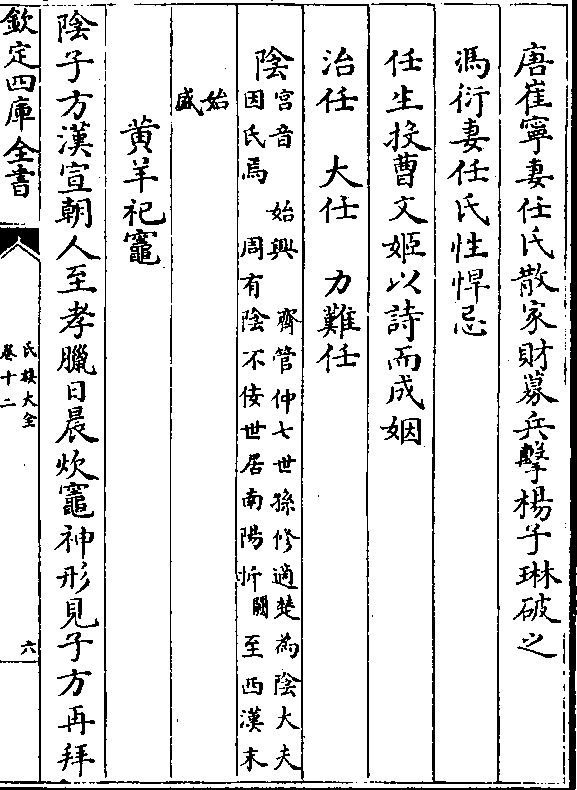 唐崔寧妻任氏散家財募兵擊楊子琳破之
馮衍妻任氏性悍忌
任生投曹文姬以詩而成姻
治任　大任　力難任
陰
宮音　始興　齊管仲七世孫修適楚為陰大夫
因氏焉　周有陰不佞世居南陽忻闕至西漢末
始
盛
黄羊祀竈
陰子方漢宣朝人至孝臘日晨炊竈神形見子方再拜
欽定四庫全書
氏族大全
卷十二
六